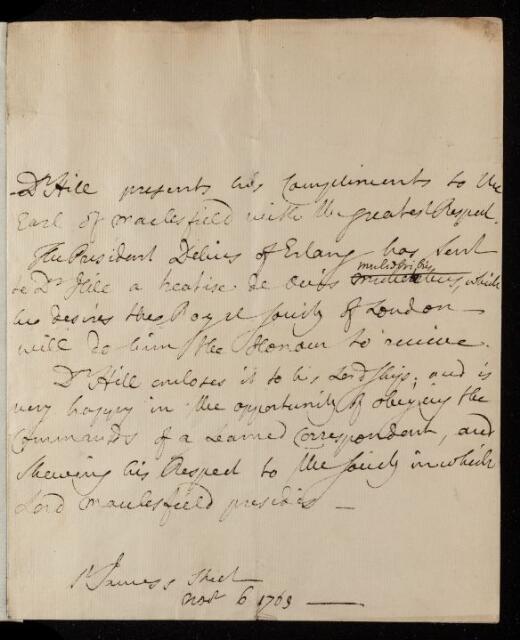 Dr Hill presents his Compliments to the
Earl of Macclesfield with the greatest Respect.
The President Delius of Erlang has sent
to Dr Hill a treatise de ovis muliebribus, which
he desires the Royal Society of London
will do him the Honour to receive.
Dr Hill encloses it to his Lordship; and is
very happy in the opportunity of obeying the
Commands of a Learned Correspondent, and
shewing his Respect to the Society in which
Lord Macclesfield presides —
St James's Street
Nov 6 1763 —